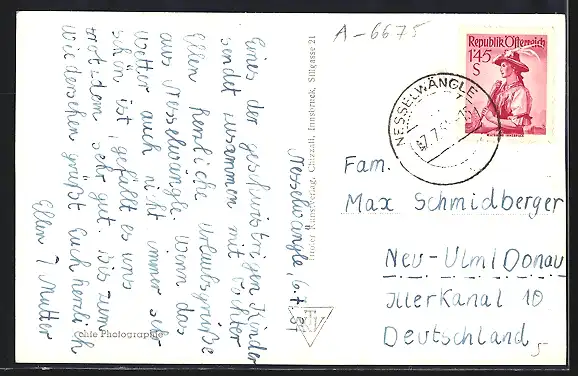 A-6675
Republik Österreich
1'45
S
NESSELWÄNGLE
Nesselwängle, 6.7.57
Eines der geschwistrigen Kinder
sendet zusammen mit Tochter
Ellen herzliche Urlaubsgrüße
aus Nesselwängle. Wenn das
Wetter auch nicht immer sehr
schön ist, gefällt es uns
trotzdem sehr gut. Bis zum
Wiedersehen grüßt Euch herzlich
Ellen Mutter
Tiroler Kunstverlag, Chizzali, Innsbruck, Sillgasse 21
Echte Photographie
Fam.
Max Schmidberger
Neu-Ulm/Donau
Illerkanal 10
Deutschland